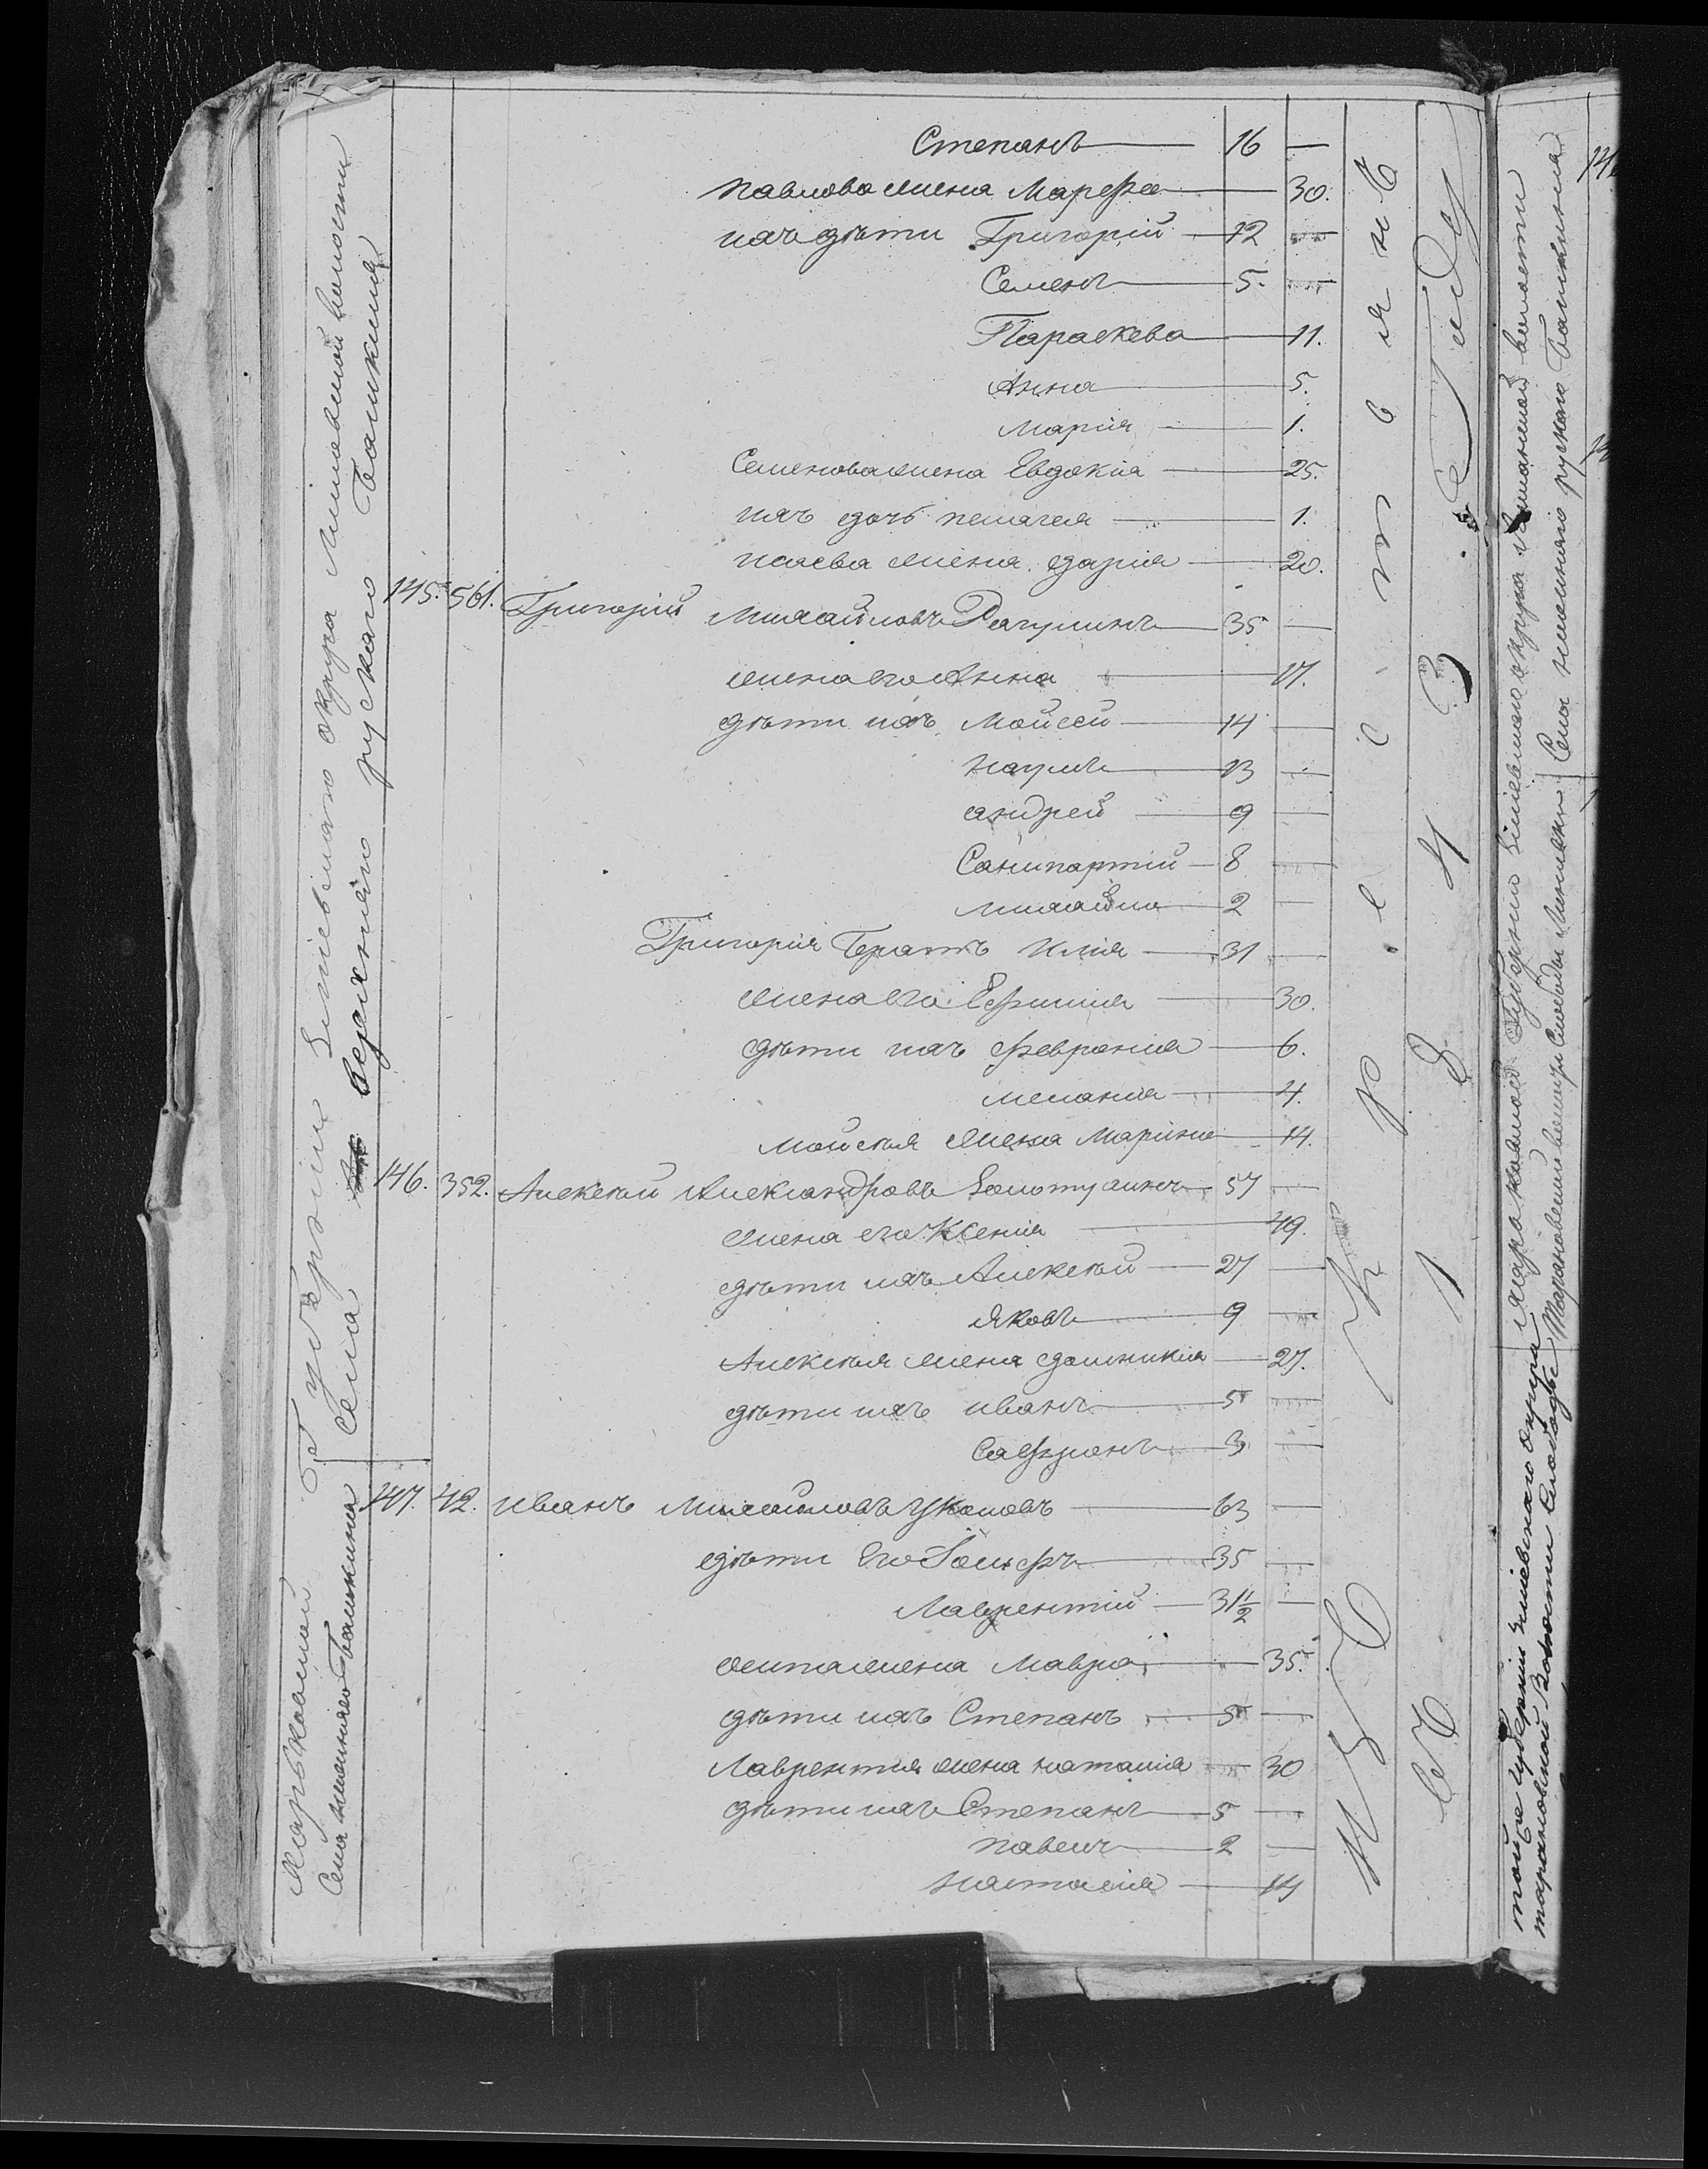 Степанъ 16 —
Павлова жена Марфа 30.
ихъ дѣти Григорій 12 —
Семенъ 5. —
Параскева 11.
Анна 5.
Марія 1.
Семенова жена Евдокія 25.
ихъ дочь Пелагея 1.
жена Дарія 20.
145. 561. Григорій Михайловъ 35 —
жена его Анна 17.
дѣти ихъ Мойсей 14 —
Наумъ 13 —
Андрей 9 —
8 —
Михайло 2 —
Григорія братъ Илія 31 —
жена его Ефимія 30.
дѣти ихъ Февронія 6.
Меланія 4.
Мойсея жена Марина 14.
146. 352. Алексѣй Александровъ 57 —
жена его Ксенія 49.
дѣти ихъ Алексѣй 27 —
Яковъ 9 —
Алексѣя жена Домникія 27.
дѣти ихъ Иванъ 5 —
Сафронъ 3 —
147. 42. Иванъ Михайловъ 63 —
дѣти его Іосифъ 35 —
Лаврентій 31½ —
жена Мавра 35.
дѣти ихъ Степанъ 5 —
Лаврентія жена Наталія 30
дѣти ихъ Степанъ 5 —
Павелъ 2 —
Наталія 14
Харьковской Губерніи Зміевскаго округа волости
Села Верхняго рускаго Бишкиня
Села Бишкина
Изъ крестьянъ
въ 183 году
Харьковской Губерніи Зміевскаго округа волости
Тарановской волости Слободы Села рускаго Бишкина
той же Губерніи Зміевскаго округа
Тарановской Волости Слободѣ